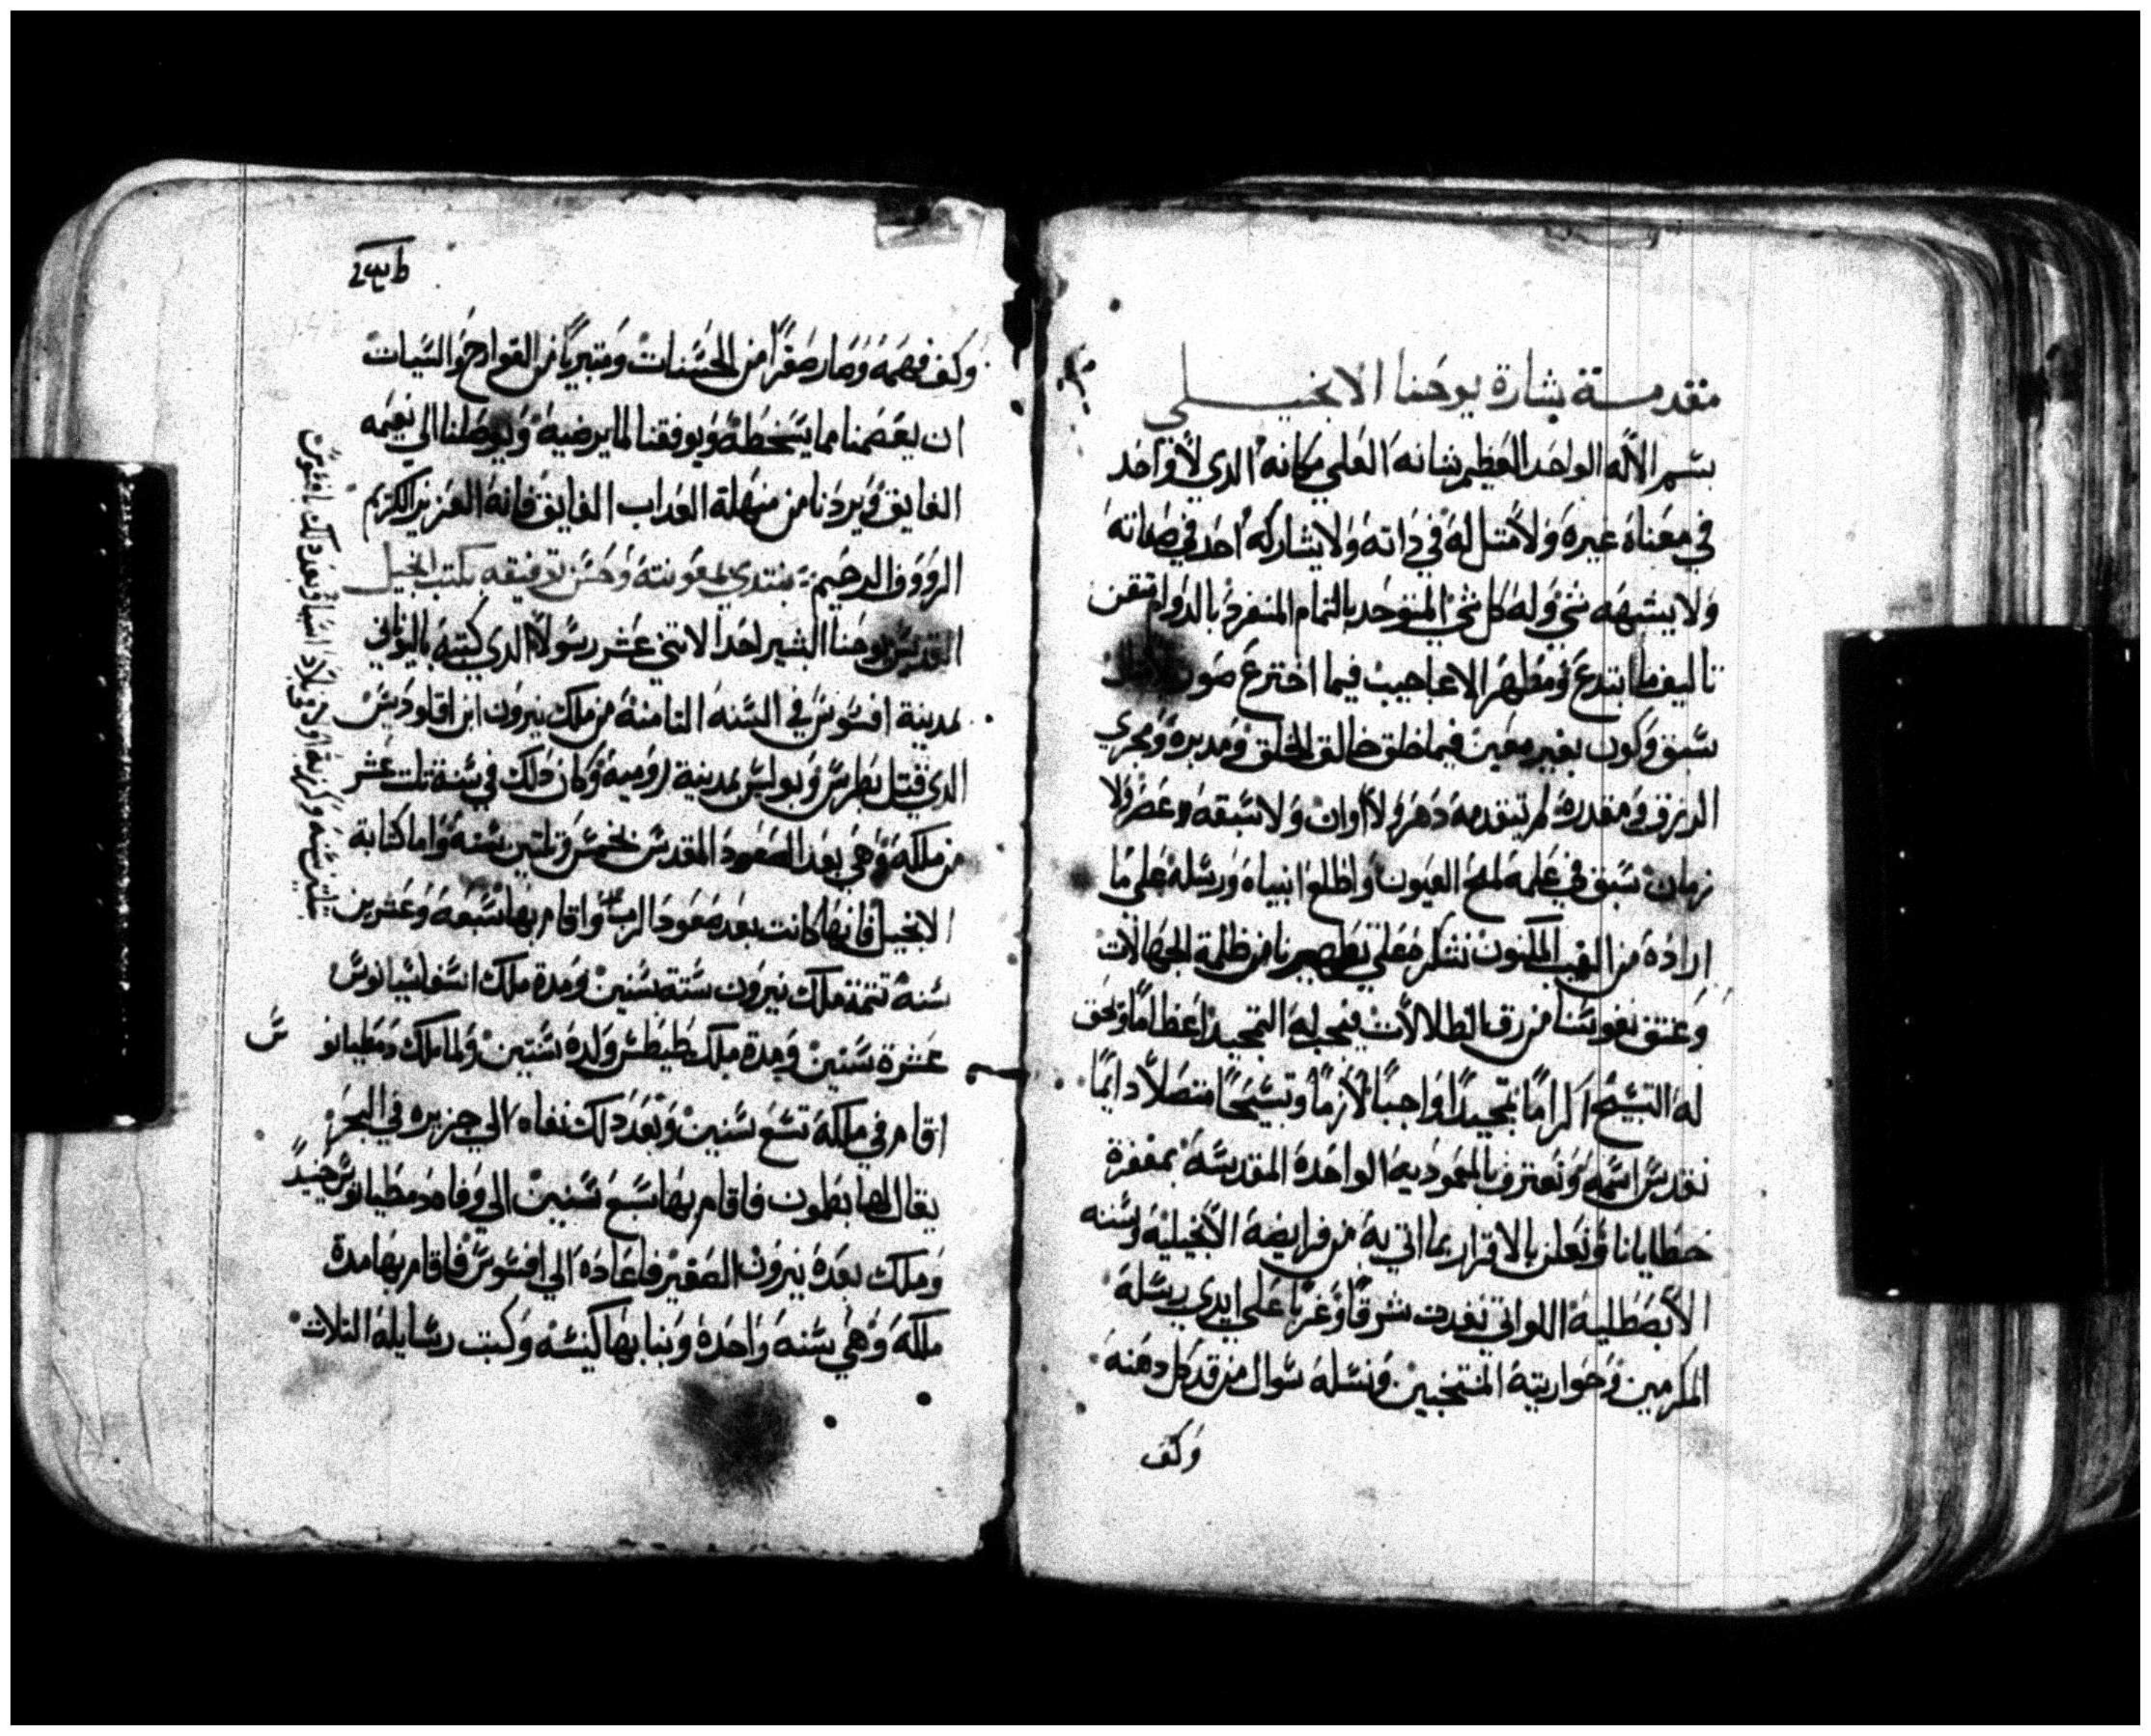 مقدمة بشارة يوحنا الانجيلي
بسم الاله الواحد العظيم شانه العلي مكانه الدي لا واحد
في معناه غيره ولا متل له في داته ولا يشاركه احد في صفاته
ولا يشبهه شي وله كل شي المتوحد بالتمام المنفرد بالدوام متقن
تاليف ما ابتدع ومظهر الاعاجيب فيما اخترع
سبق وكون بغير معين فيما خلق خالق الخلق ومدبره ومجري
الرزق ومقدره لم يتقدمه دهر ولا اوان ولا سبقه عصر ولا
زمان سبق في علمه لمح العيون واطلع انبياه ورسله على ما
اراده من الغيب المكنون نشكره علي تطهيرنا من ظلمة الجهالات
وعتق نفوسنا من رق الطلالات فيجب له التمجيد اعظاما ويحق
له التسبيح اكراما تمجيدا واجبا لازما وتسبيحا متصلا دايما
نقدس اسمه ونعترف بالمعموديه الواحدة المقدسة بمغفرة
خطايانا ونعلن بالاقرار بما اتي به من فرايضه الانجيليه وسننه
الابصطليه اللواتي نفدت شرقا وغربا علي ايدي رسله
المكرمين وحواريته المنتخبين ونسله سوال من قد كل دهنه
وكف
وكف فهمه وصار صفرا من الحسنات ومتبريا من القوادح والسيات
ان يعصمنا مما يسخطه ويوفقنا لما يرضيه ويوصلنا الي نعيمه
الفايق ويردنا من منهلة العداب الفايق فانه العزيز الكريم
الرووف الرحيم نبتدي بمعونته وحسن توفيقه بكتب انجيل
القديس يوحنا البشير احد الاتني عشر رسولا الدي كتبه باليوناني
بمدينة افسوس في السنه التامنة من ملك نيرون ابن اقلوديس
الدي قتل بطرس وبولس بمدينة رومية وكان دلك في سنة تلت عشر
من ملكه وهي بعد الصعود المقدس بخمس وتلتين سنه واما كتابة
الانجيل فانها كانت بعد صعود الرب واقام بها سبعة وعشرين
سنه تتمة ملك نيرون ستة سنين ومدة ملك اسفاسيانوس
عشرة سنين ومدة ملك طيطس ولده سنتين ولما ملك دمطيانو
س
اقام في ملكه تسع سنين وبعد دلك نفاه الي جزيره في البحر
يقال لها بطمون فاقام بها سبع سنين الي وفاه دمطيانوس حينيد
وملك بعده نيرون الصغير فاعاده الي افسوس فاقام بها مدة
ملكه وهي سنه واحدة وبنا بها كنيسه وكتب رسايله التلات